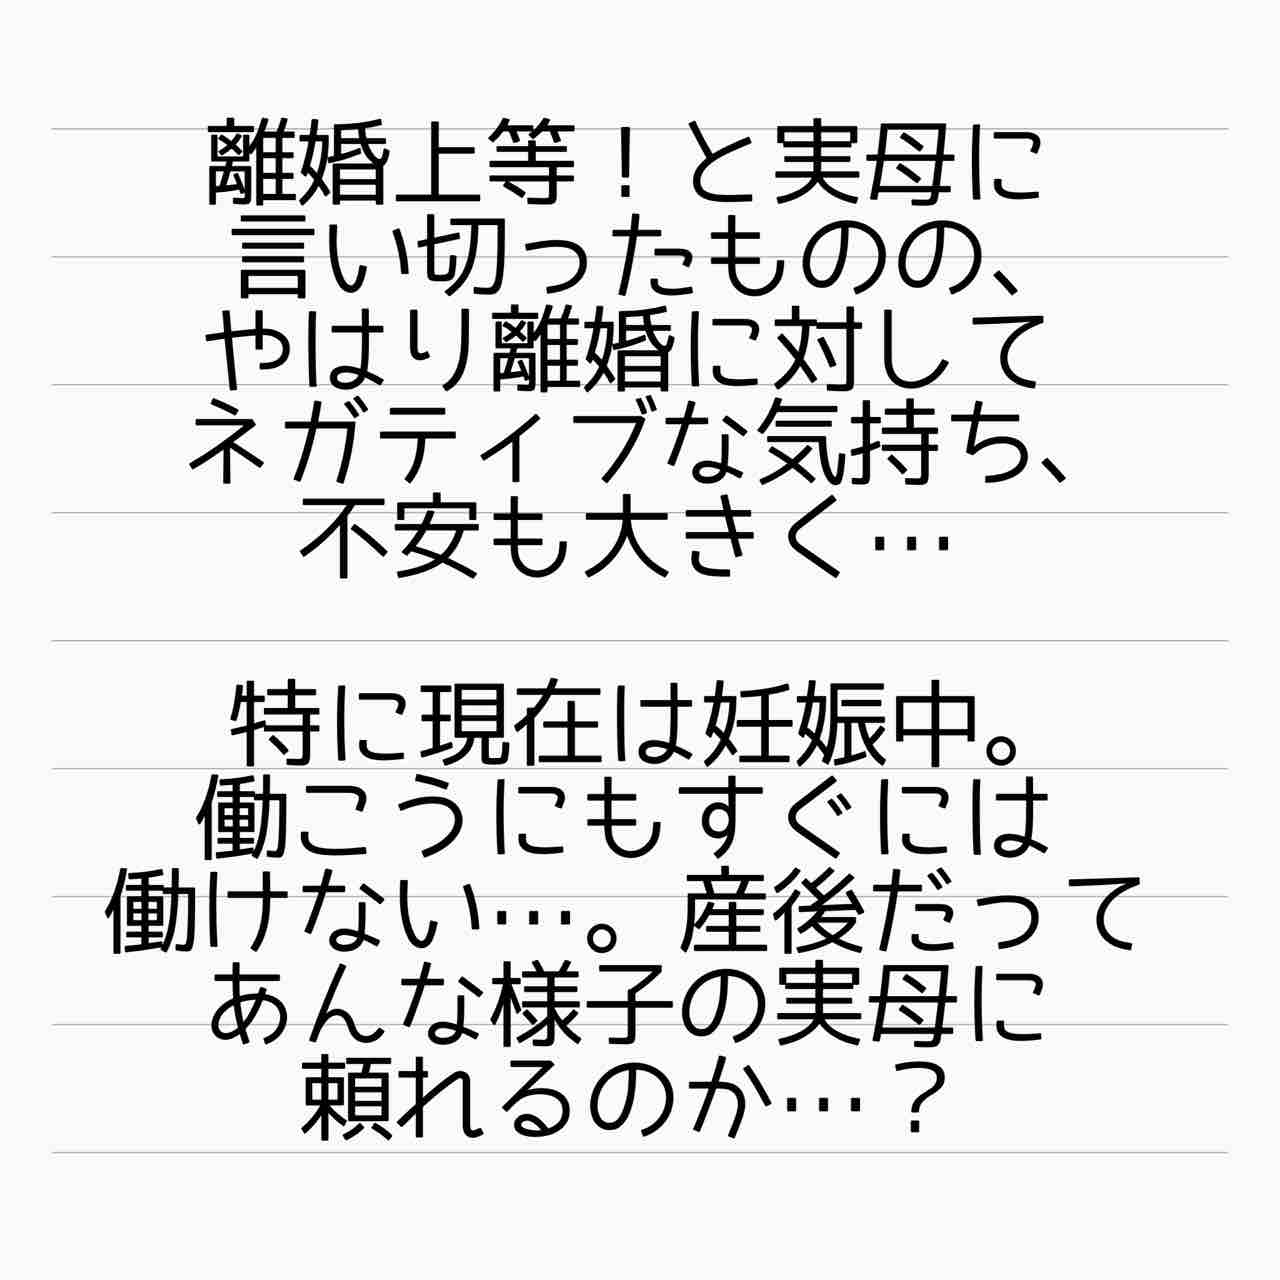 離婚上等！と実母に
言い切ったものの、
やはり離婚に対して
ネガティブな気持ち、
不安も大きく…
特に現在は妊娠中。
働こうにもすぐには
働けない…。産後だって
あんな様子の実母に
頼れるのか…？